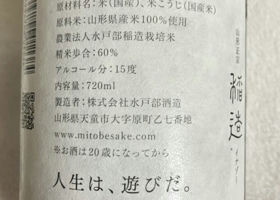 原材料名:米(国産)、米こうじ(国産米)
原料米:山形県産米100%使用
農業法人水戸部稲造栽培米
精米歩合:60%
アルコール分:15度
内容量:720ml
製造者:株式会社水戸部酒造
山形県天童市大字原町乙七番地
www.mitobesake.com
※お酒は20歳になってから
人生は、遊びだ。
山形正宗
稲造
イナゾー